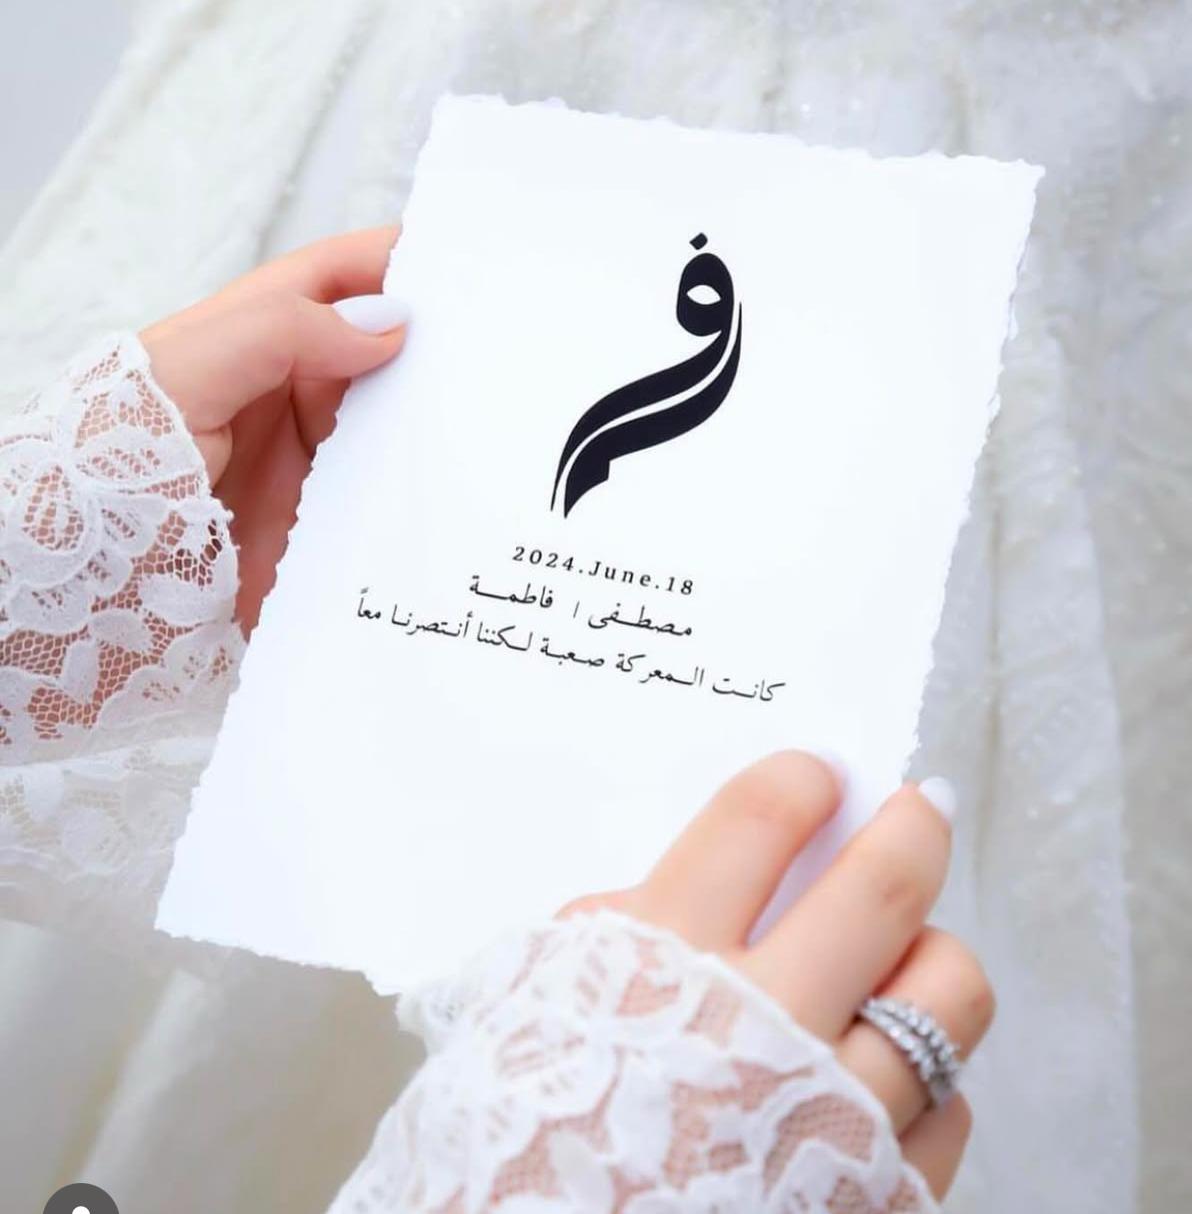 2024.June.18
مصطفى | فاطمة
كانت المعركة صعبة لكننا أنتصرنا معاً